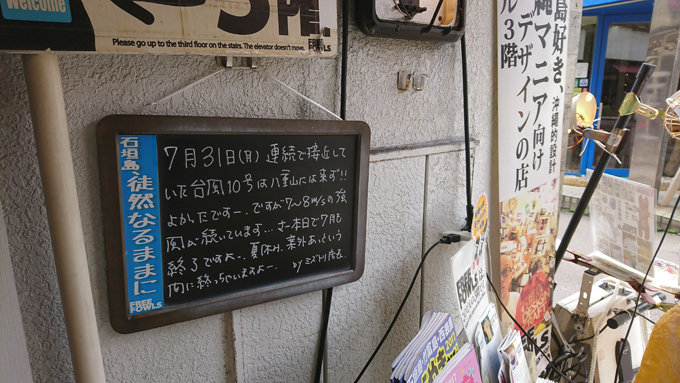 Welcome
Please go up to the third floor on the stairs. The elevator doesn't move.
FREE FOWLS
石垣島、徒然なるままに
FREE FOWLS
7月31日(月) 連続で接近して
いた台風10号は八重山には来ず!!
よかったですー。ですが7〜8m/sの強
風が続いています…さー本日で7月も
終了ですよー。夏休み、案外あっという
間に終っちゃいますよー。 by ミズトリ店長
島好き、
縄マニア向け
デザインの店
ル3階
沖縄的設計
FREE FOWLS
2017